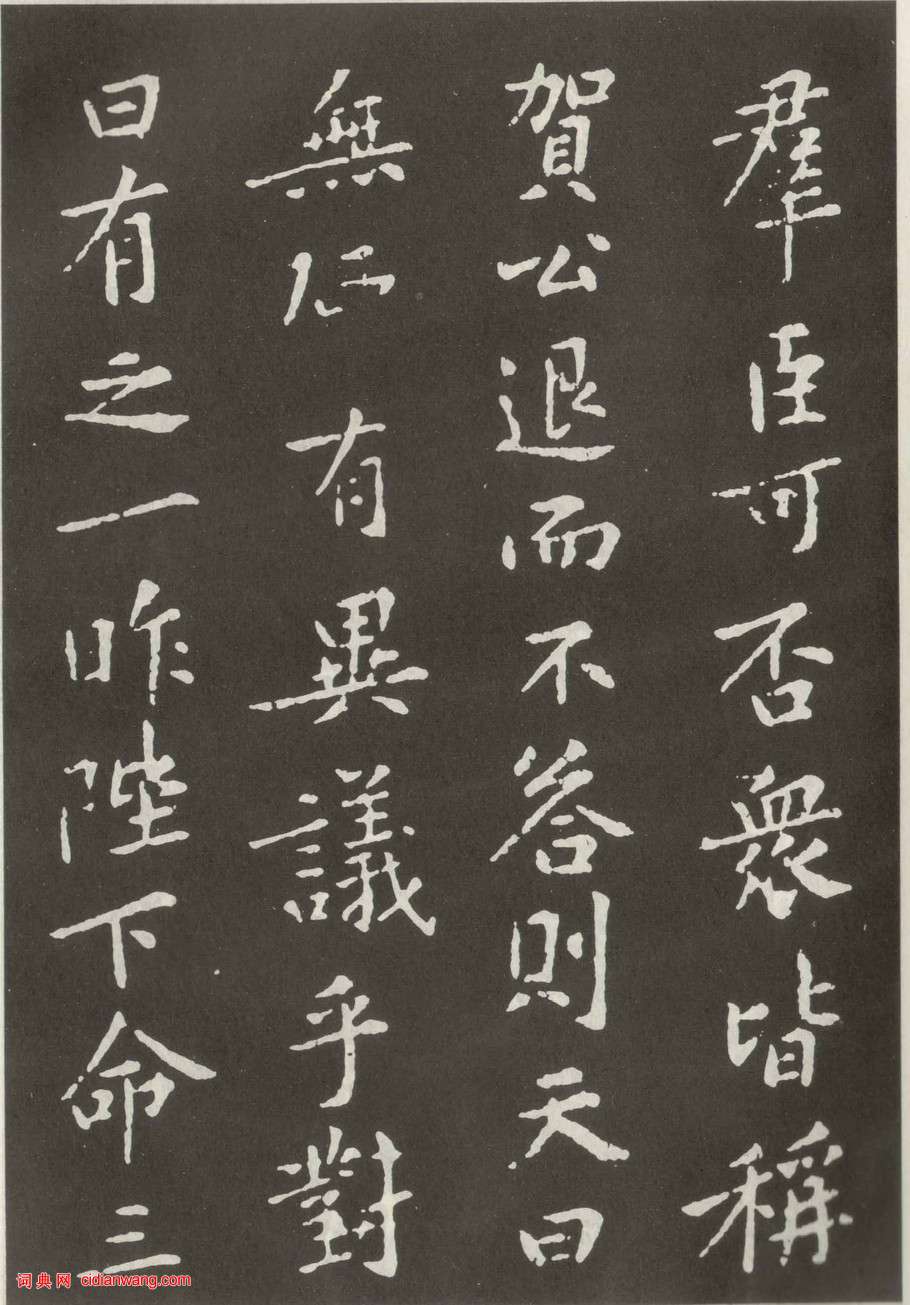 羣臣可否衆皆稱
賀公退而不答則天曰
無廼有異議乎對
曰有之一昨陛下命三
词典网 cidianwang.com